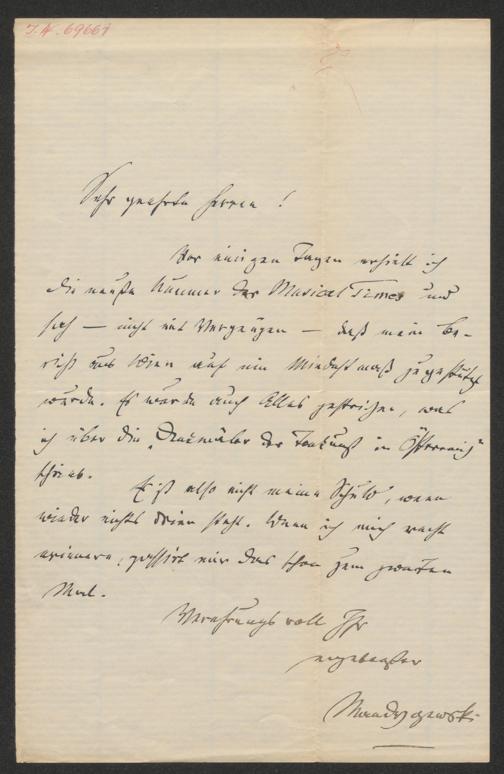 I.N. 69661
Sehr geehrter Herren!
Vor einigen Tagen erhielt ich
die neueste Nummer der Musical Times und
sah – nicht mit Vergnügen – daß mein Be-
richt aus Wien auf ein Mindestmaß zugestutzt
wurde. Es wurde auch Alles gestrichen, was
ich über die „Denkmäler der Tonkunst in Österreich"
schrieb.
Es ist also nicht meine Schuld, wenn
wieder nichts drinn steht. Wenn ich mich recht
erinnere, passirt mir das schon zum zweiten
Mal.
Verehrungsvoll Ihr
ergebenster
Mandyczewski